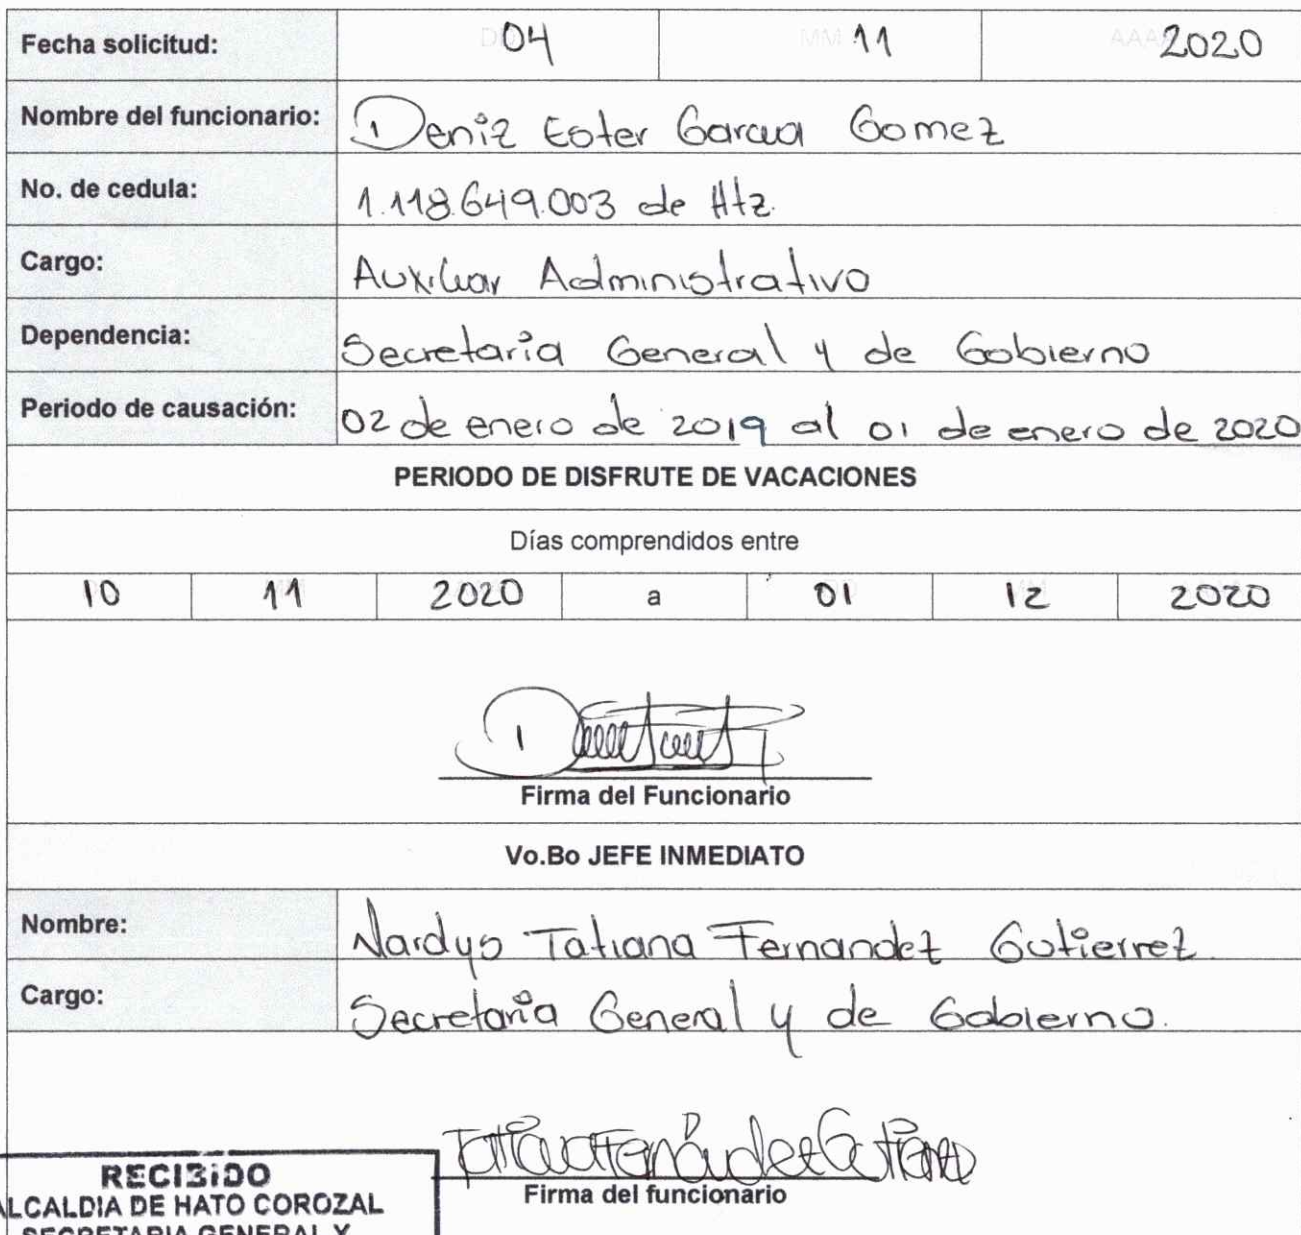 Fecha solicitud: DD 04 MM 11 AAAA 2020
Nombre del funcionario: Deniz Ester Garcia Gomez
No. de cedula: 1.118.649.003 de Htz.
Cargo: Auxiliar Administrativo
Dependencia: Secretaria General y de Gobierno
Periodo de causación: 02 de enero de 2019 al 01 de enero de 2020
PERIODO DE DISFRUTE DE VACACIONES
Días comprendidos entre
10 11 2020 a 01 12 2020
Firma del Funcionario
Vo.Bo JEFE INMEDIATO
Nombre: Nardys Tatiana Fernandez Gutierrez
Cargo: Secretaria General y de Gobierno.
Tatiana Fernández Gutiérrez
Firma del funcionario
RECIBIDO
ALCALDIA DE HATO COROZAL
SECRETARIA GENERAL Y